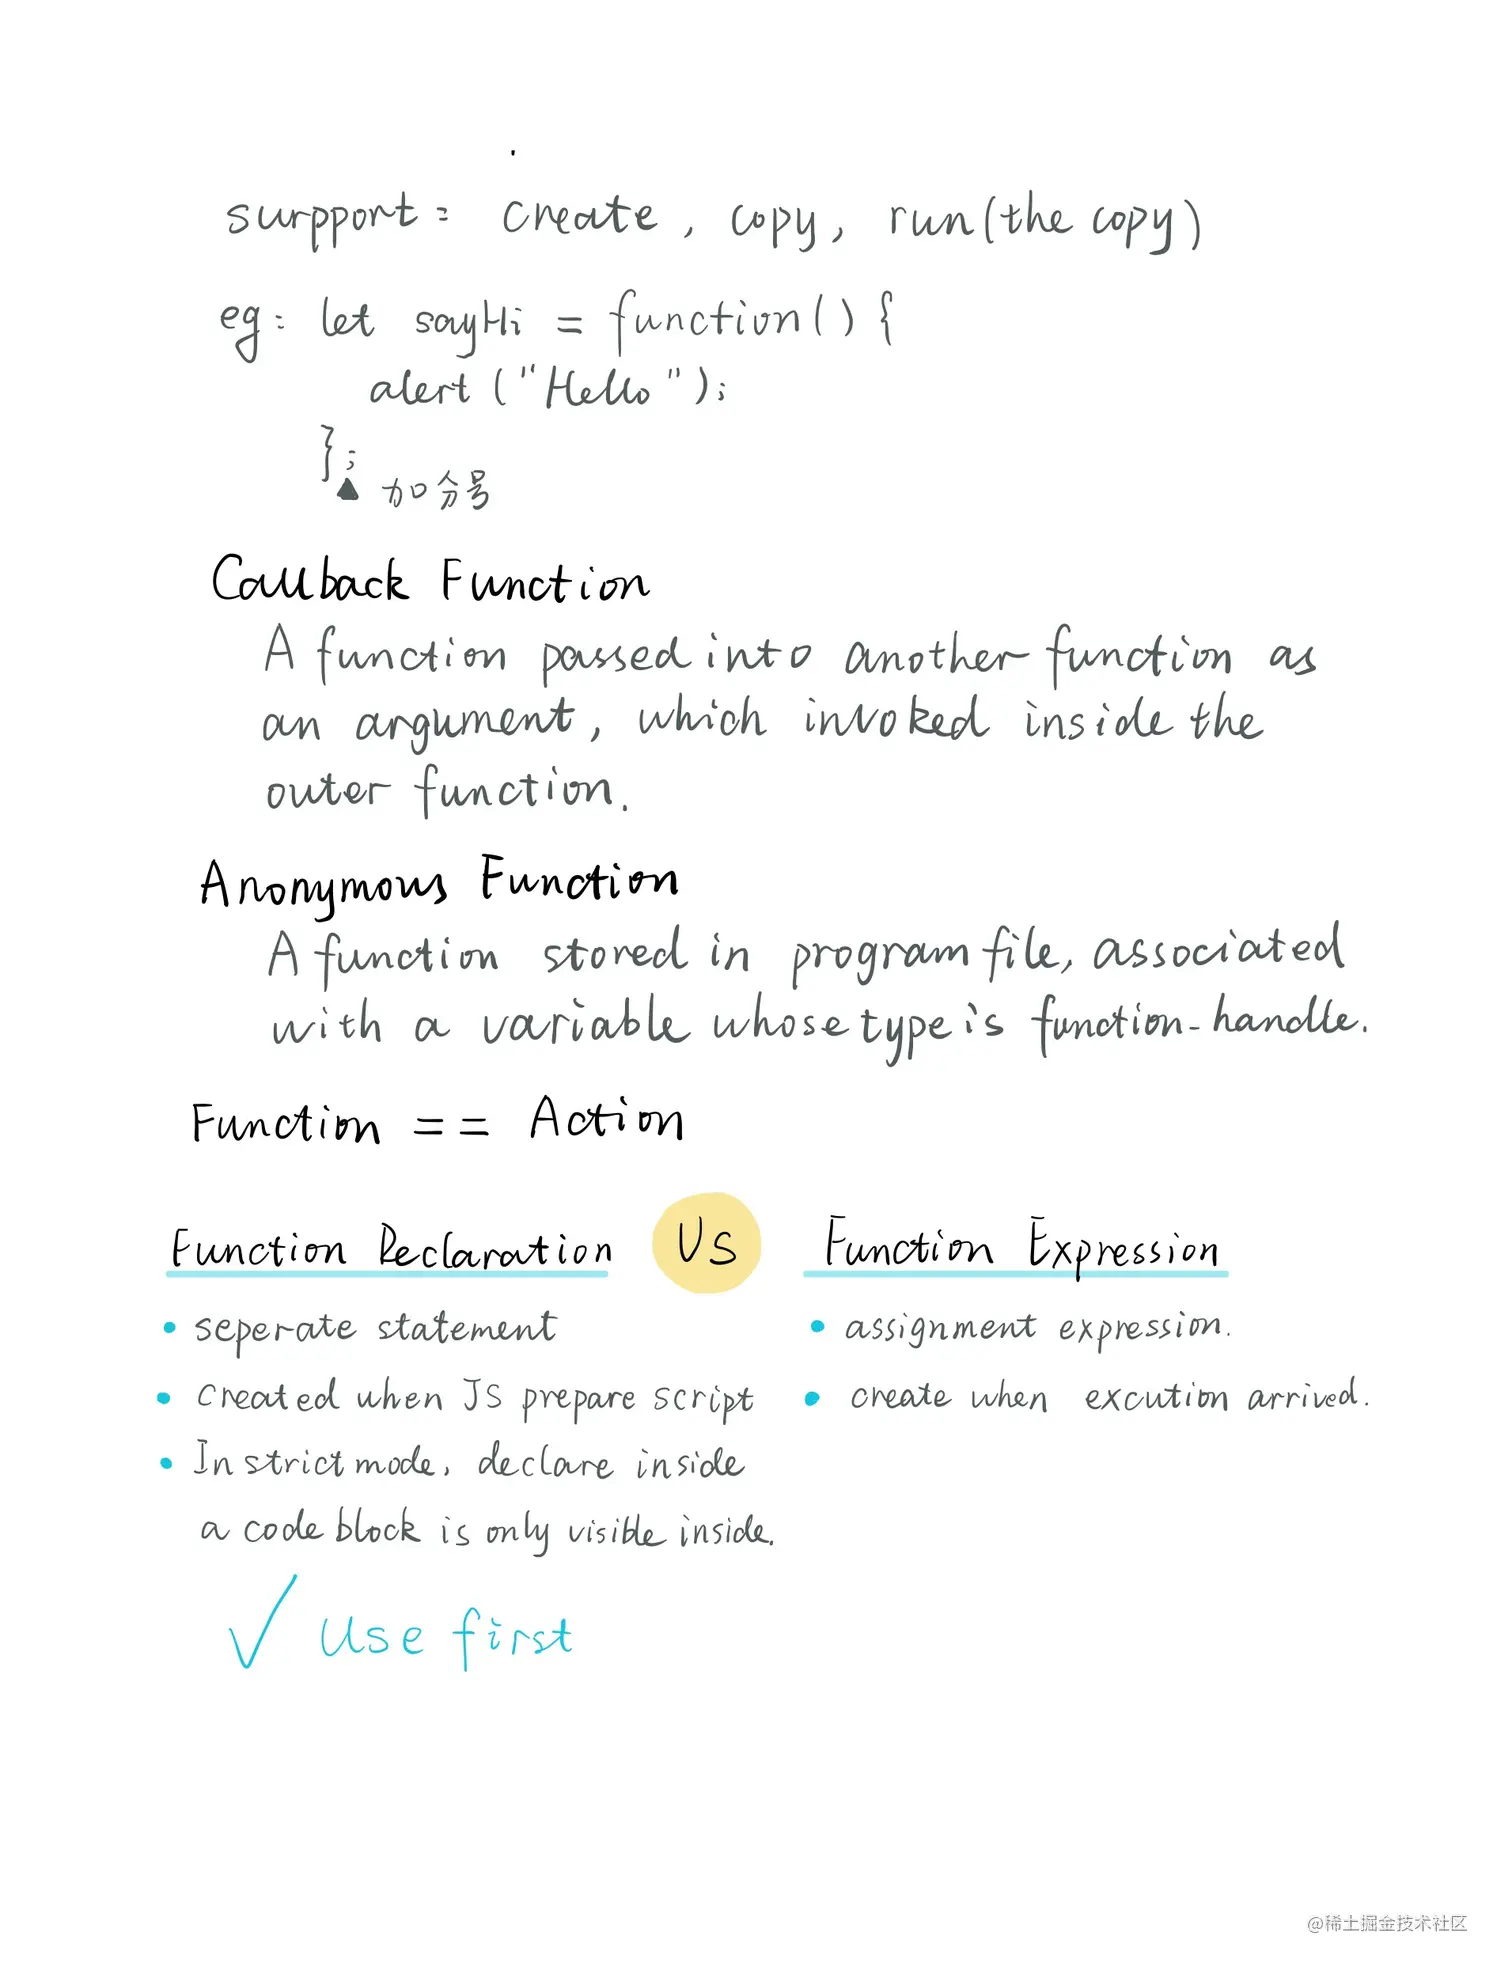 surpport: create, copy, run(the copy)
eg: let sayHi = function() {
alert("Hello");
};
加分号
Callback Function
A function passed into another function as
an argument, which invoked inside the
outer function.
Anonymous Function
A function stored in program file, associated
with a variable whose type is function-handle.
Function == Action
Function Declaration VS Function Expression
• seperate statement
• assignment expression.
• created when JS prepare script
• create when excution arrived.
• In strict mode, declare inside
a code block is only visible inside.
✓ Use first
@稀土掘金技术社区